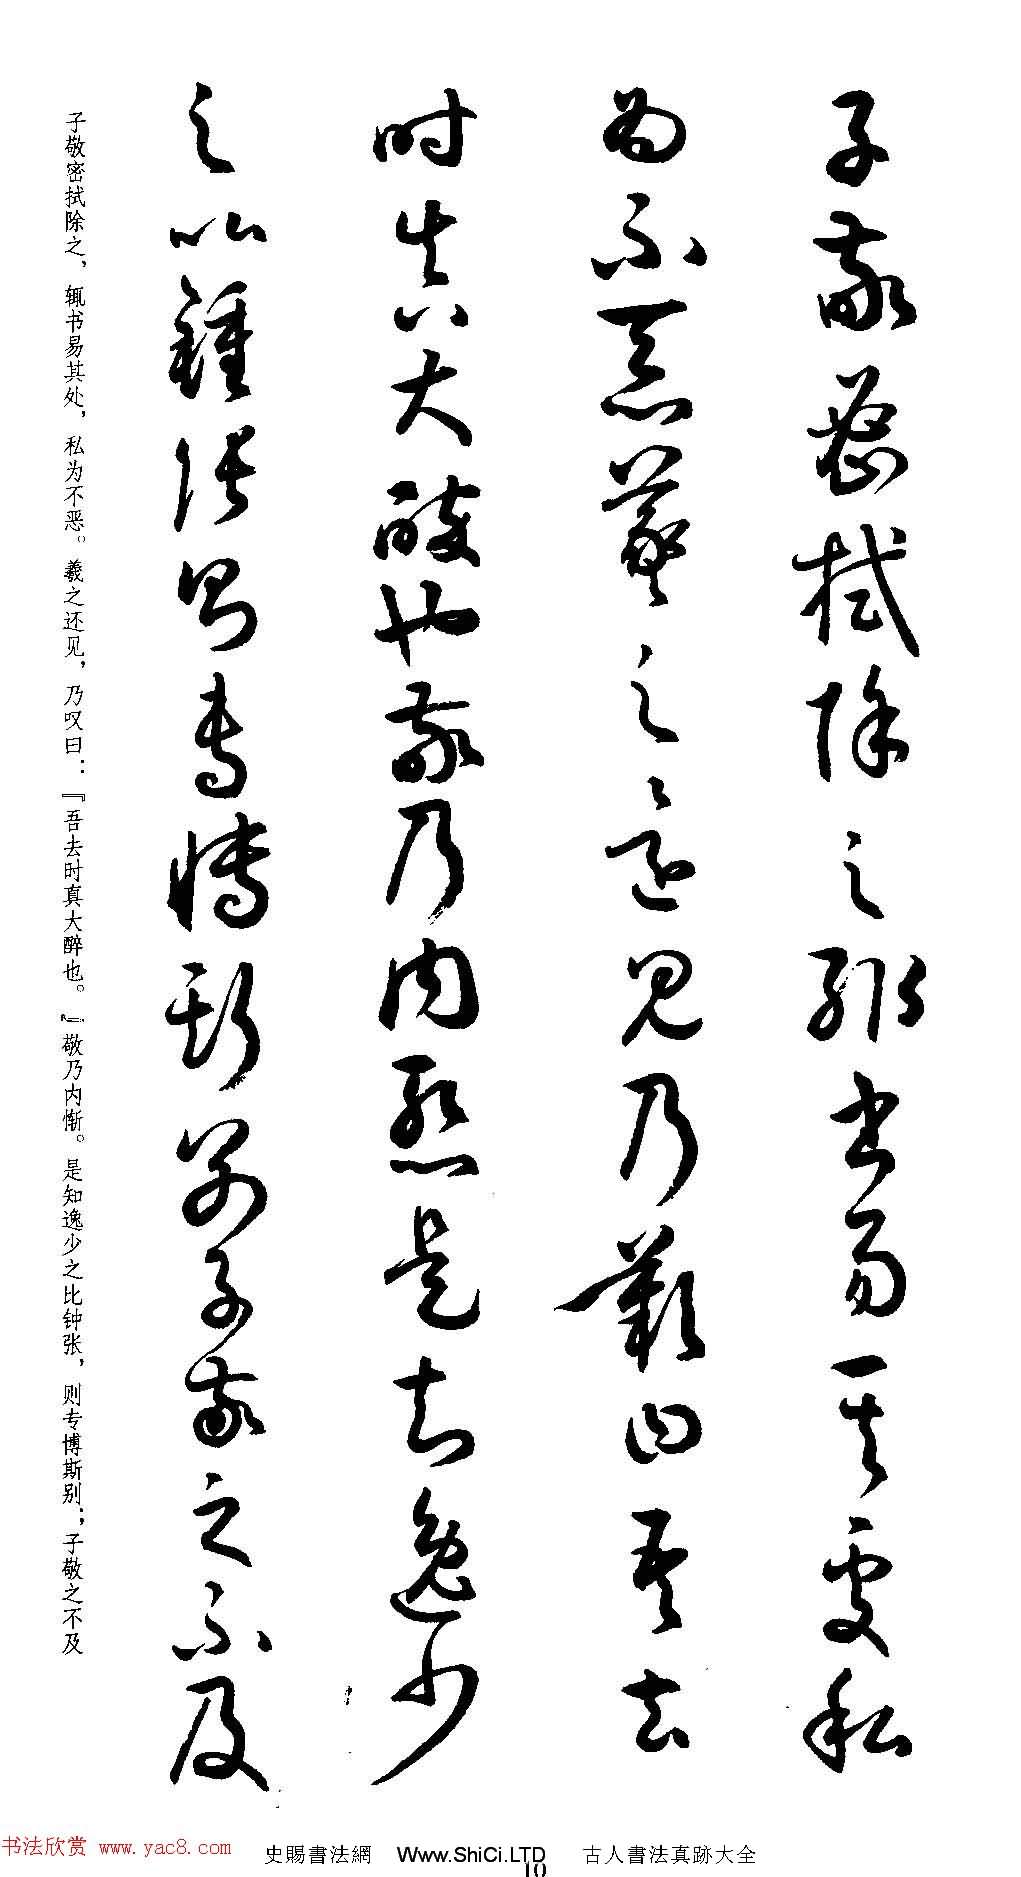 子敬密拭除之辄书易其处私
为不恶羲之还见乃叹曰吾去
时真大醉也敬乃内惭是知逸少
之比鍾张则专博斯别子敬之不及
子敬密拭除之，辄书易其处，私为不恶。羲之还见，乃叹曰：『吾去时真大醉也。』敬乃内惭。是知逸少之比钟张，则专博斯别；子敬之不及
书法欣赏 www.yac8.com
史賜書法網 Www.ShiCi.LTD 古人書法真跡大全
10